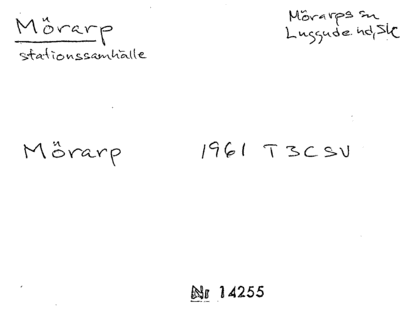 Mörarp
stationssamhälle
Mörarps sn
Luggude hd, Sk
Mörarp 1961 T 3C SV
Nr 14255